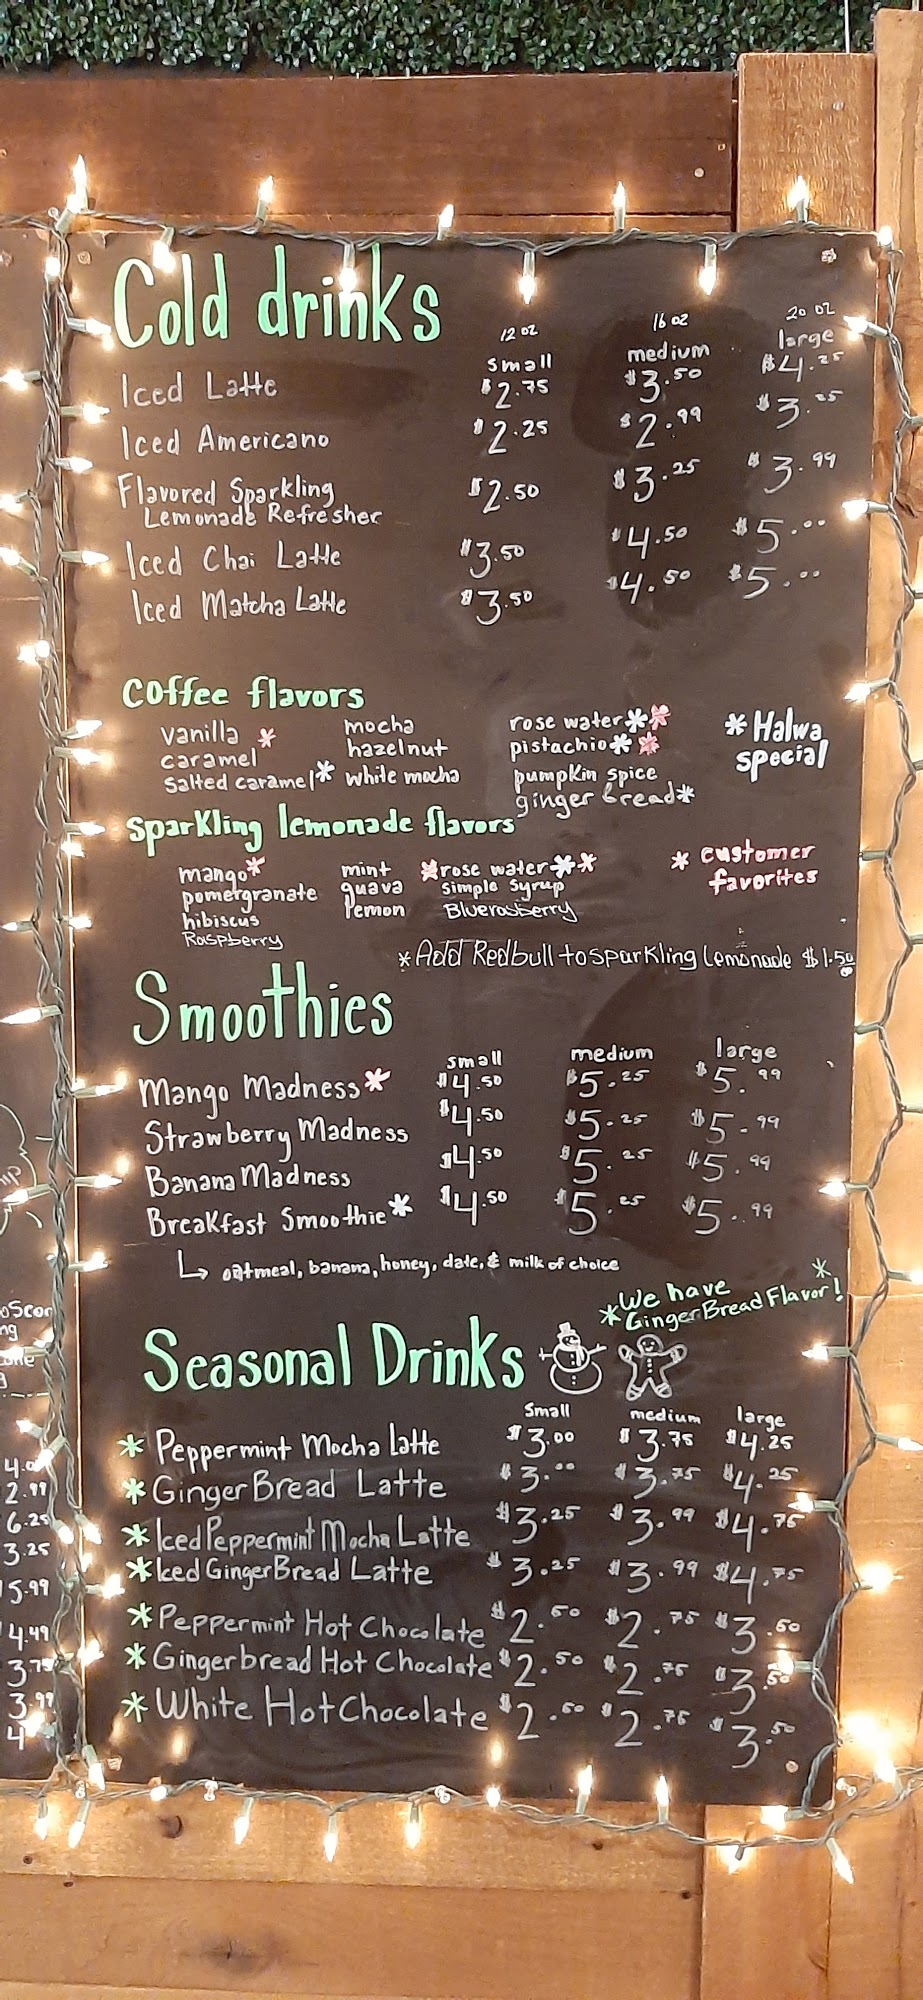 Cold drinks
12 oz 16 oz 20 oz
small medium large
Iced Latte $2.75 $3.50 $4.25
Iced Americano $2.25 $2.99 $3.25
Flavored Sparkling $2.50 $3.25 $3.99
Lemonade Refresher
Iced Chai Latte $3.50 $4.50 $5.00
Iced Matcha Latte $3.50 $4.50 $5.00
Coffee flavors
vanilla * mocha rose water** * Halwa
caramel hazelnut pistachio** special
salted caramel* white mocha pumpkin spice
ginger bread*
Sparkling lemonade flavors
mango* mint *rose water** * customer
pomergranate guava simple syrup favorites
hibiscus lemon Bluerasberry
Raspberry
*Add Redbull to sparkling Lemonade $1.50
Smoothies
small medium large
Mango Madness* $4.50 $5.25 $5.99
Strawberry Madness $4.50 $5.25 $5.99
Banana Madness $4.50 $5.25 $5.99
Breakfast Smoothie* $4.50 $5.25 $5.99
↳ oatmeal, banana, honey, date, & milk of choice
*We have *
GingerBread Flavor!
Seasonal Drinks
small medium large
* Peppermint Mocha Latte $3.00 $3.75 $4.25
* GingerBread Latte $3.00 $3.75 $4.25
* Iced Peppermint Mocha Latte $3.25 $3.99 $4.75
* Iced GingerBread Latte $3.25 $3.99 $4.75
* Peppermint Hot Chocolate $2.50 $2.75 $3.50
* Gingerbread Hot Chocolate $2.50 $2.75 $3.50
* White Hot Chocolate $2.50 $2.75 $3.50
2.99
6.25
3.25
5.99
4.49
3.75
3.99